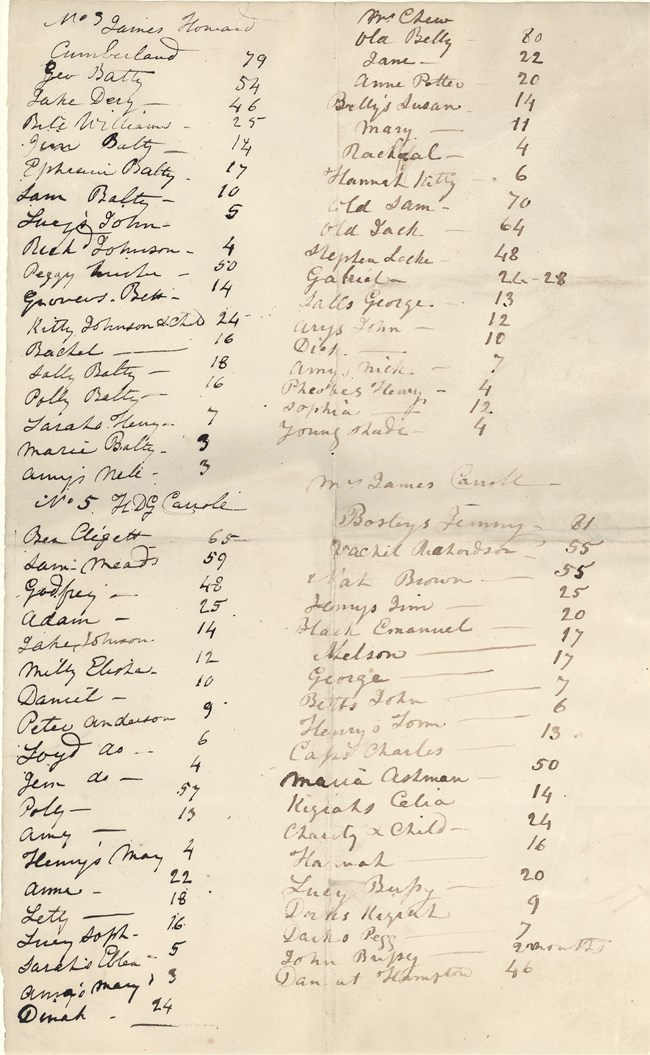 No 3 James Howard
Cumberland 79
Geo Batty 54
Jake Dery — 46
Bill Williams - 25
Jim Batty — 14
Ephraim Batty - 17
Sam Batty - 10
Lucy's John - 5
Rich Johnson - 4
Peggy 50
Bett - 14
Kitty Johnson & Child 24
Rachel — 16
Sally Batty — 18
Polly Batty - 16
Sarahs Henry - 7
Maria Batty - 3
Amy's Nell - 3
No 5. HDG Carroll
Ben Clegett 65
Sam Meads 59
Godfrey - 48
Adam - 25
Jake Johnson 14
Milly Elisha - 12
Daniel - 10
Peter Anderson 9
Loyd do - - 6
Jem do - 4
Poly - 57
Amy — 13
Henny's May 4
Anne - 22
Letty — 18
Lucy Soph - 16
Sarah's Ellen - 5
Amy's Mary 3
Dinah - 24
Mrs Chew
Old Betty - 80
Jane - 22
Anne Potter - 20
Betty's Susan - 14
Mary — 11
Rachael - 4
Hannah Kitty - 6
Old Sam - 70
Old Jack - 64
Stephen - 48
Gabriel - 24-28
Salls George - 13
Arys John - 12
Dick — 10
Amys Nick - 7
Pheobes Henry - 4
Sophia — 12
Young - 4
Mrs James Carroll —
Bosleys Jemmy - 81
Vachil Richardson 55
Nat Brown - 55
Henrys Jim — 25
Black Emanuel — 20
Nelson — 17
George — 17
Betts John — 7
Henry's Tom — 6
Capt Charles 13
Maria Ashman - 50
Kiziahs Celia 14
Charity & Child - 24
Hannah — 16
Lucy - 20
Kiziah 9
Pegg 7
John 2 months
Dan at Hampton 46